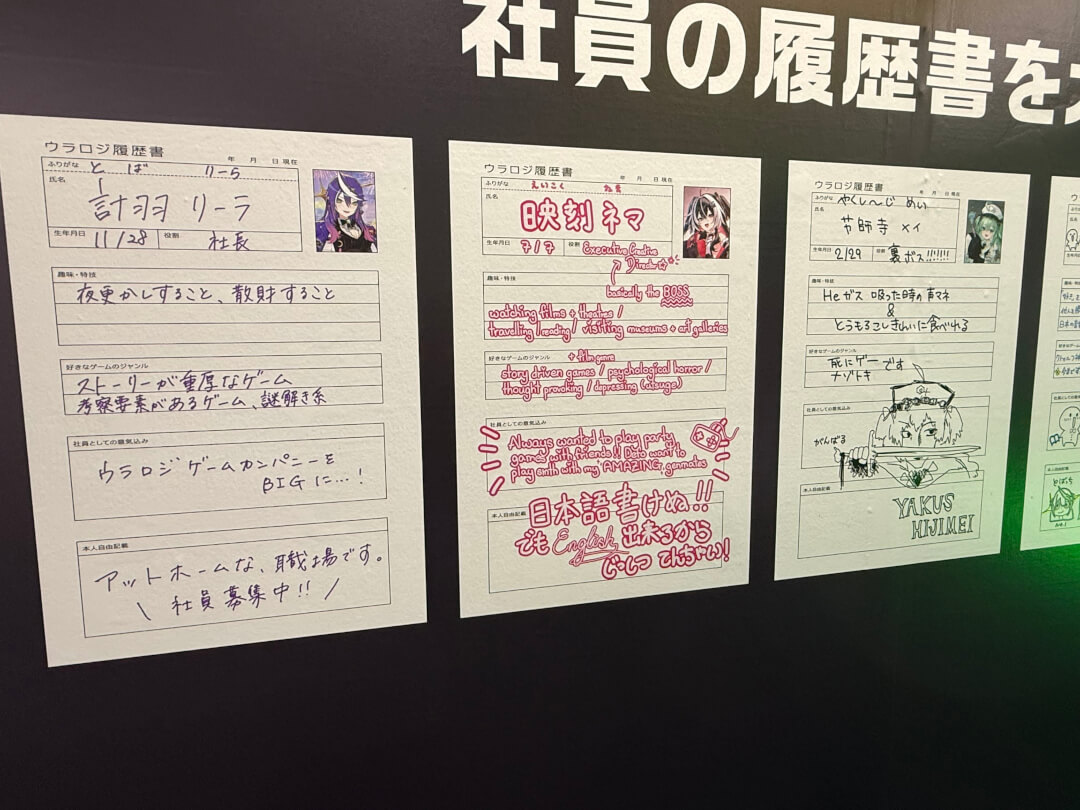 社員の履歴書を
ウラロジ履歴書
年 月 日現在
ふりがな とば りーら
氏名
計羽 リーラ
生年月日 11/28 役割 社長
趣味・特技
夜更かしすること、散財すること
好きなゲームのジャンル
ストーリーが重厚なゲーム
考察要素があるゲーム、謎解き系
社員としての意気込み
ウラロジゲームカンパニーを
BIGに…!
本人自由記載
アットホームな、職場です。
\ 社員募集中!! /
ウラロジ履歴書
年 月 日現在
ふりがな えいこく ねま
氏名
映刻ネマ
生年月日 7/7 役割 Executive Creative
Director
basically the BOSS
趣味・特技
watching films + theatres /
travelling / reading / visiting museums + art galleries
好きなゲームのジャンル + film genre
story driven games / psychological horror /
thought provoking / depressing (utsuge)
社員としての意気込み
Always wanted to play party
games with friends!! Dato want to
play smth with my AMAZING genmates
本人自由記載
日本語書けぬ!!
でも English 出来るから
じっしつ てんちゃい!
ウラロジ履歴書
年 月 日現在
ふりがな やくし〜じ めい
氏名
薬師寺 メイ
生年月日 2/29 役割 裏ボス!!!!!!
趣味・特技
Heガス 吸った時の声マネ
&
とうもろこしきれいに食べれる
好きなゲームのジャンル
死にゲー です
ナゾトキ
社員としての意気込み
がんばる
本人自由記載
YAKUS
HIJIMEI
とばっち
No.1